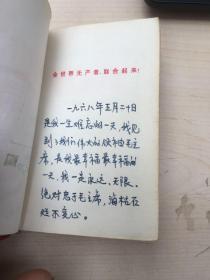 全世界无产者,联合起来!
一九六八年五月二十日
是我一生难忘的一天,我见
到了我们伟大的领袖毛主
席,是我最幸福最幸福的
一天,我一定永远、无限、
绝对忠于毛主席,海枯石
烂不变心。